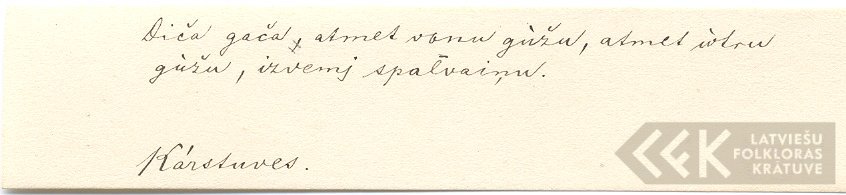 Diča gača, atmet vonu gùžu, atmet ùtru
gùžu, izvemj spal̄vaiņu.
Kārstuves.
LATVIEŠU
FOLKLORAS
KRĀTUVE